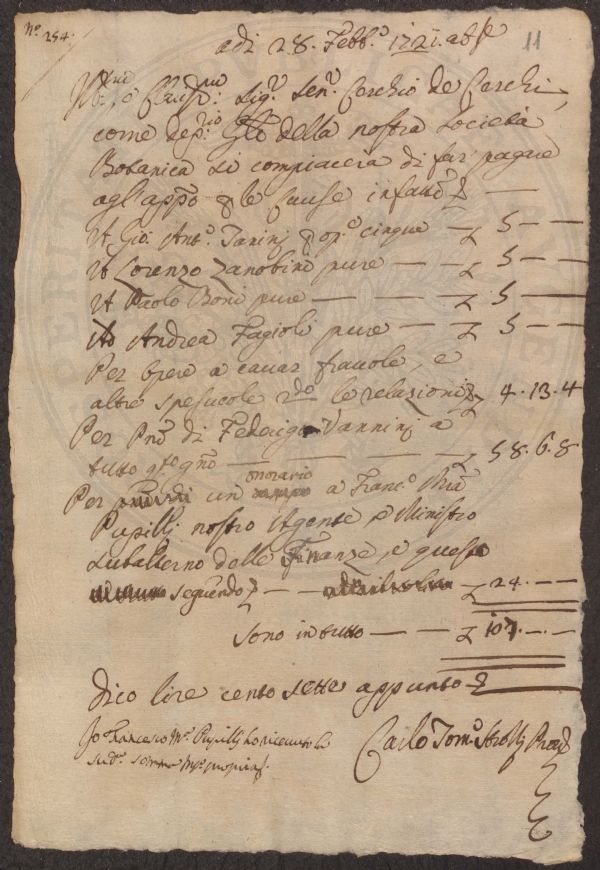 N.° 254.
adi 28. Febb.° 1721. ab Inc.e
11
Sig.r Sen.r Cerchio de Cerchi,
come dep.rio della nostra Società
Botanica si compiaccia di far pagare
agl'app.o le cause infratte £ —
A Gio. Ant.° Vanini cinque — £ 5 — —
A Lorenzo Zanobini pure — £ 5 — —
A Paolo Boni pure — — £ 5 — —
Ad Andrea Fagioli pure — £ 5 — —
Per Opere a cavar fravole, e
altre spesucole le relazioni £ 4. 13. 4
Per di Federigo Vannini a
tutto — £ 58. 6. 8
onorario
Per un a Franc.° M.a
Pupilli nostro Agente, e Ministro
subalterno delle Finanze, e questo
seguendo — — £ 24 — —
Sono in tutto — — £ 107. —. —
Dico lire cento sette appunto £
Io Francesco M.a Pupilli ho ricevuto la
sud.a somma m.o propria
Carlo Tom.° Strozzi